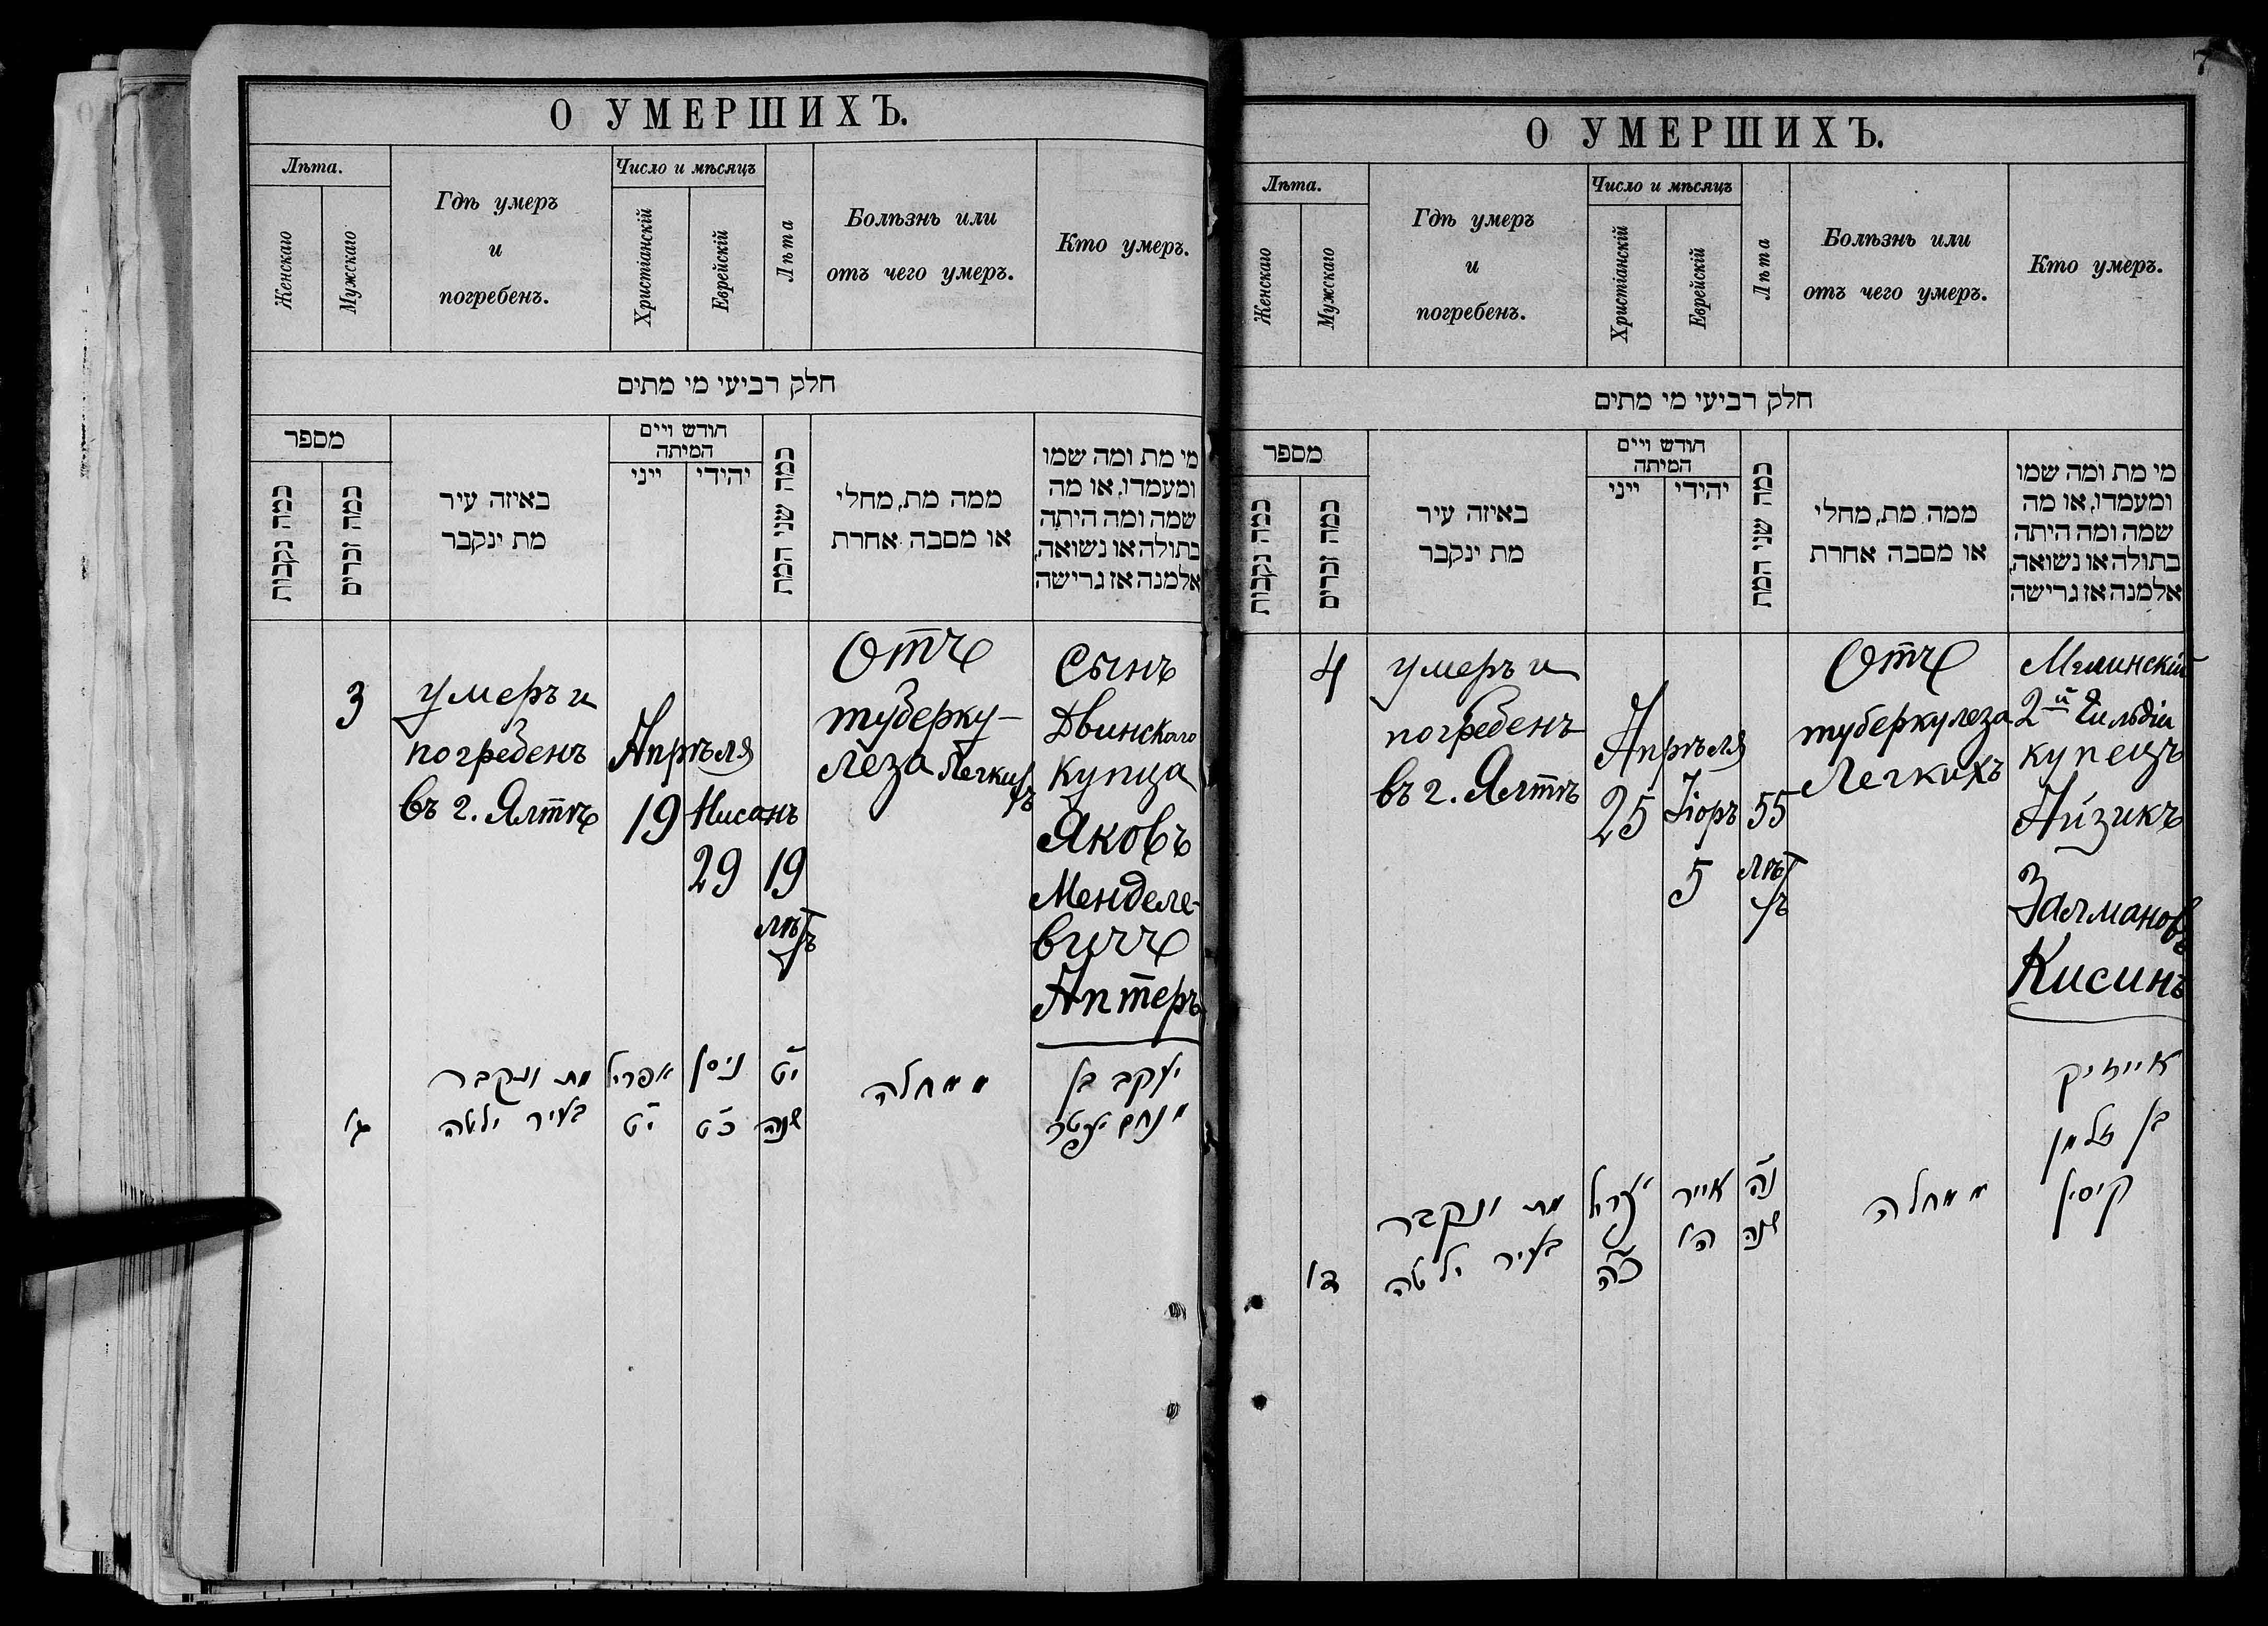 О УМЕРШИХЪ.
Лѣта.
Женскаго
Мужскаго
Гдѣ умеръ
и
погребенъ.
Число и мѣсяцъ
Христіанскій
Еврейскій
Лѣта
Болѣзнь или
отъ чего умеръ.
Кто умеръ.
חלק רביעי מי מתים
מספר
כמה נקבות
כמה זכרים
באיזה עיר
מת ינקבר
חודש ויים
המיתה
ייני
יהידי
כמה שני המת
ממה מת, מחלי
או מסבה אחרת
מי מת ומה שמו
ומעמדו, או מה
שמה ומה היתה
בתולה או נשואה,
אלמנה אז גרישה
3
умеръ и
погребенъ
въ г. Ялтѣ
Апрѣля
19
Нисанъ
29
19
лѣтъ
Отъ
туберку-
леза легкихъ
Сынъ
Двинскаго
купца
Яковъ
Менделе-
вичъ
Аптеръ
ג׳
מת ונקבר
בעיר ילטה
אפריל
י״ט
ניסן
כ״ט
י״ט
שנה
ממחלה
יעקב בן
מנחם
7
О УМЕРШИХЪ.
Лѣта.
Женскаго
Мужскаго
Гдѣ умеръ
и
погребенъ.
Число и мѣсяцъ
Христіанскій
Еврейскій
Лѣта
Болѣзнь или
отъ чего умеръ.
Кто умеръ.
חלק רביעי מי מתים
מספר
כמה נקבות
כמה זכרים
באיזה עיר
מת ינקבר
חודש ויים
המיתה
ייני
יהידי
כמה שני המת
ממה מת, מחלי
או מסבה אחרת
מי מת ומה שמו
ומעמדו, או מה
שמה ומה היתה
בתולה או נשואה,
אלמנה אז גרישה
4
умеръ и
погребенъ
въ г. Ялтѣ
Апрѣля
25
Іюръ
5
55
лѣтъ
Отъ
туберкулеза
Легкихъ
Мглинскій
2й Гильдіи
купецъ
Айзикъ
Залмановъ
Кисинъ
ד׳
מת ונקבר
בעיר ילטה
כ״ה
אייר
ה׳
נ״ה
שנה
ממחלה
אייזיק
בן זלמן
קיסין